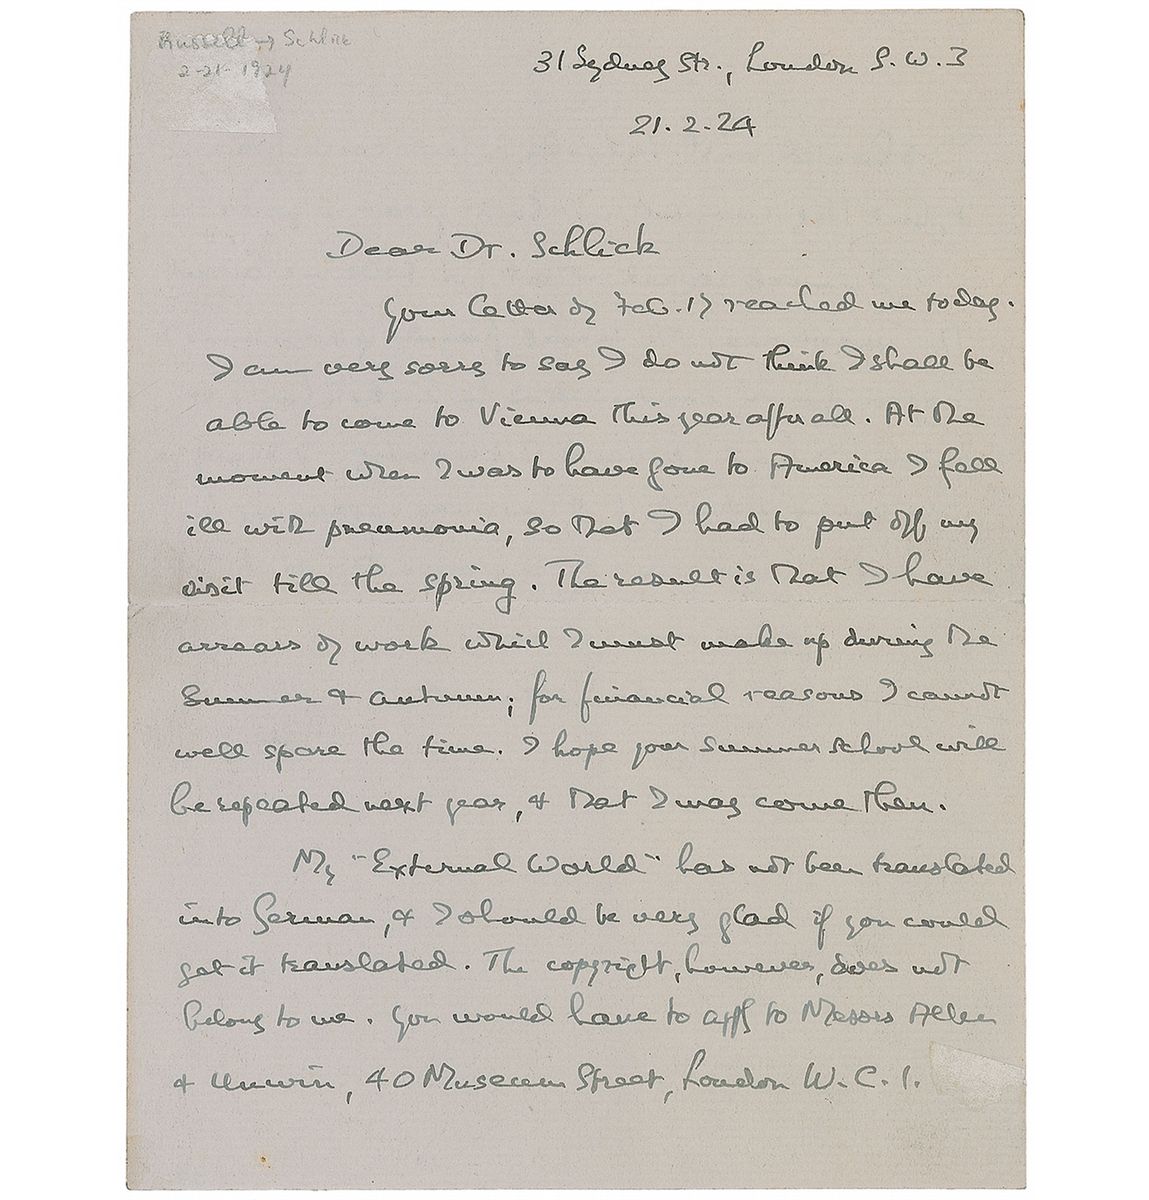 Russell → Schlick
2-21-1924
31 Sydney Str., London S.W.3
21.2.24
Dear Dr. Schlick
Your letter of Feb. 17 reached me today.
I am very sorry to say I do not think I shall be
able to come to Vienna this year after all. At the
moment when I was to have gone to America I fell
ill with pneumonia, so that I had to put off my
visit till the spring. The result is that I have
arrears of work which I must make up during the
summer & autumn; for financial reasons I cannot
well spare the time. I hope your summer school will
be repeated next year, & that I may come then.
My "External World" has not been translated
into German, & I should be very glad if you could
get it translated. The copyright, however, does not
belong to me. You would have to apply to Messrs Allen
& Unwin, 40 Museum Street, London W.C.1.